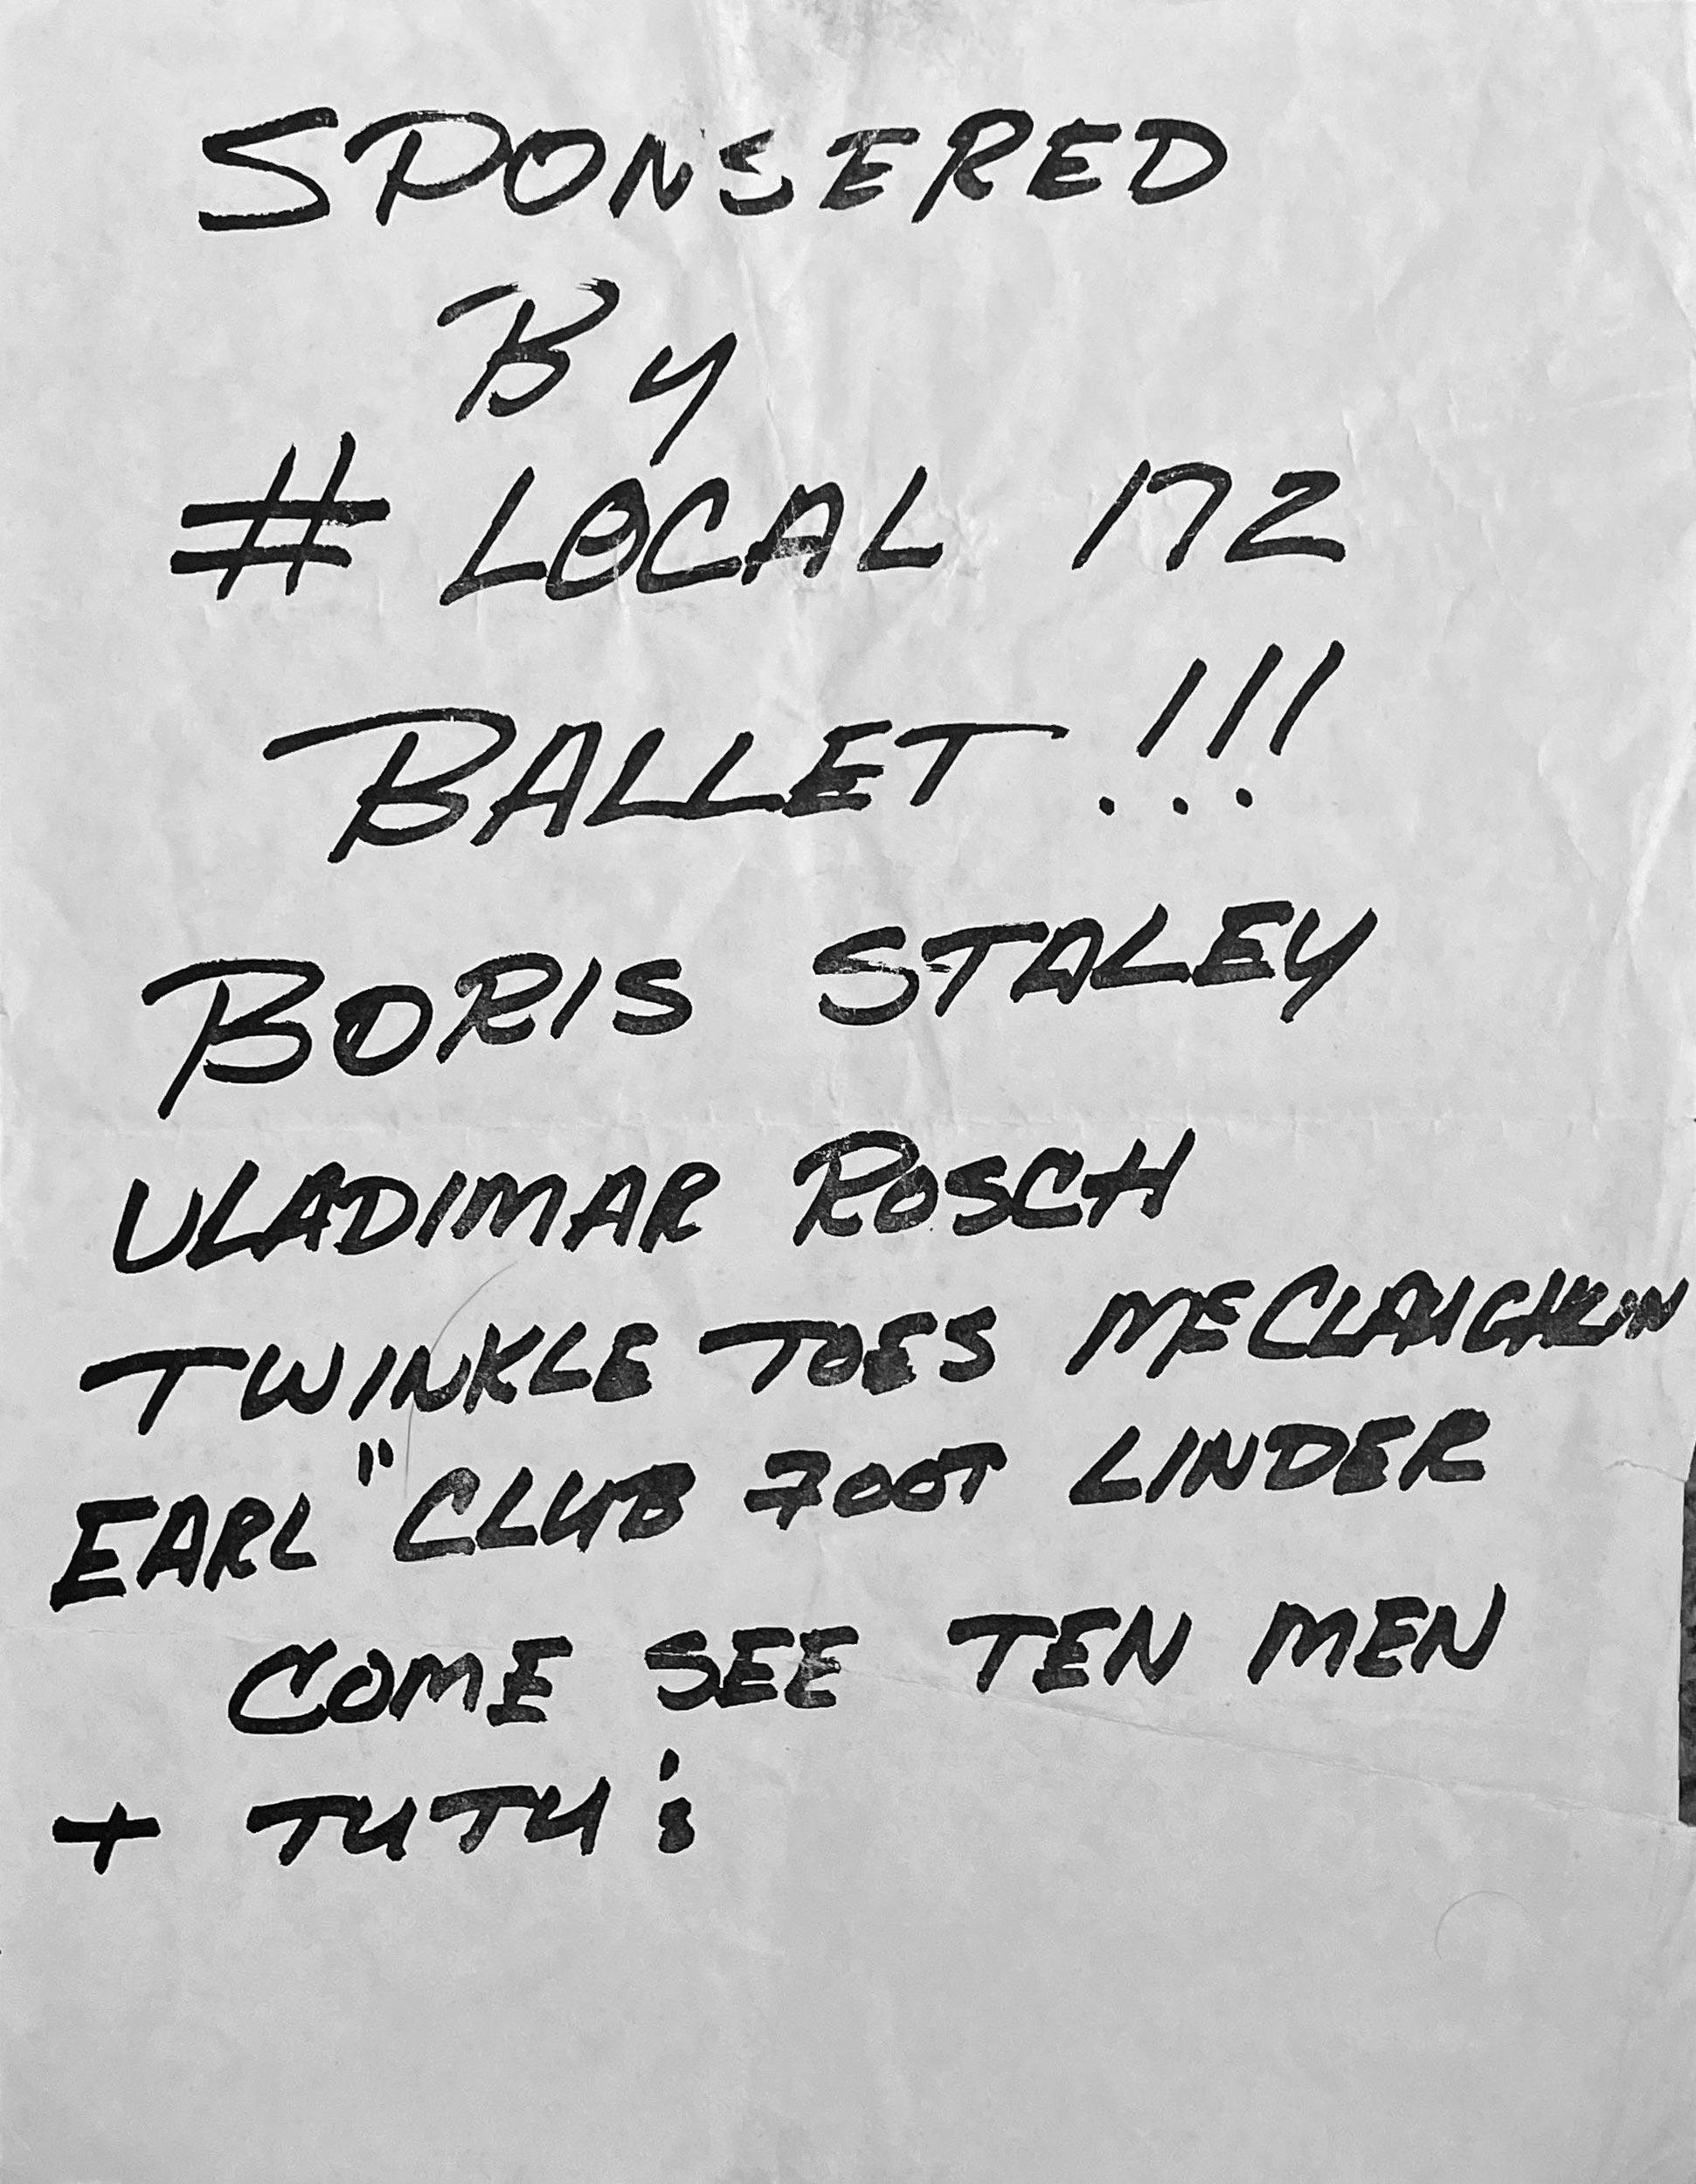 SPONSERED
By
# LOCAL 172
BALLET !!!
BORIS STALEY
VLADIMAR ROSCH
TWINKLE TOES McCLAUGHLIN
EARL "CLUB FOOT LINDER
COME SEE TEN MEN
+ TUTU'S